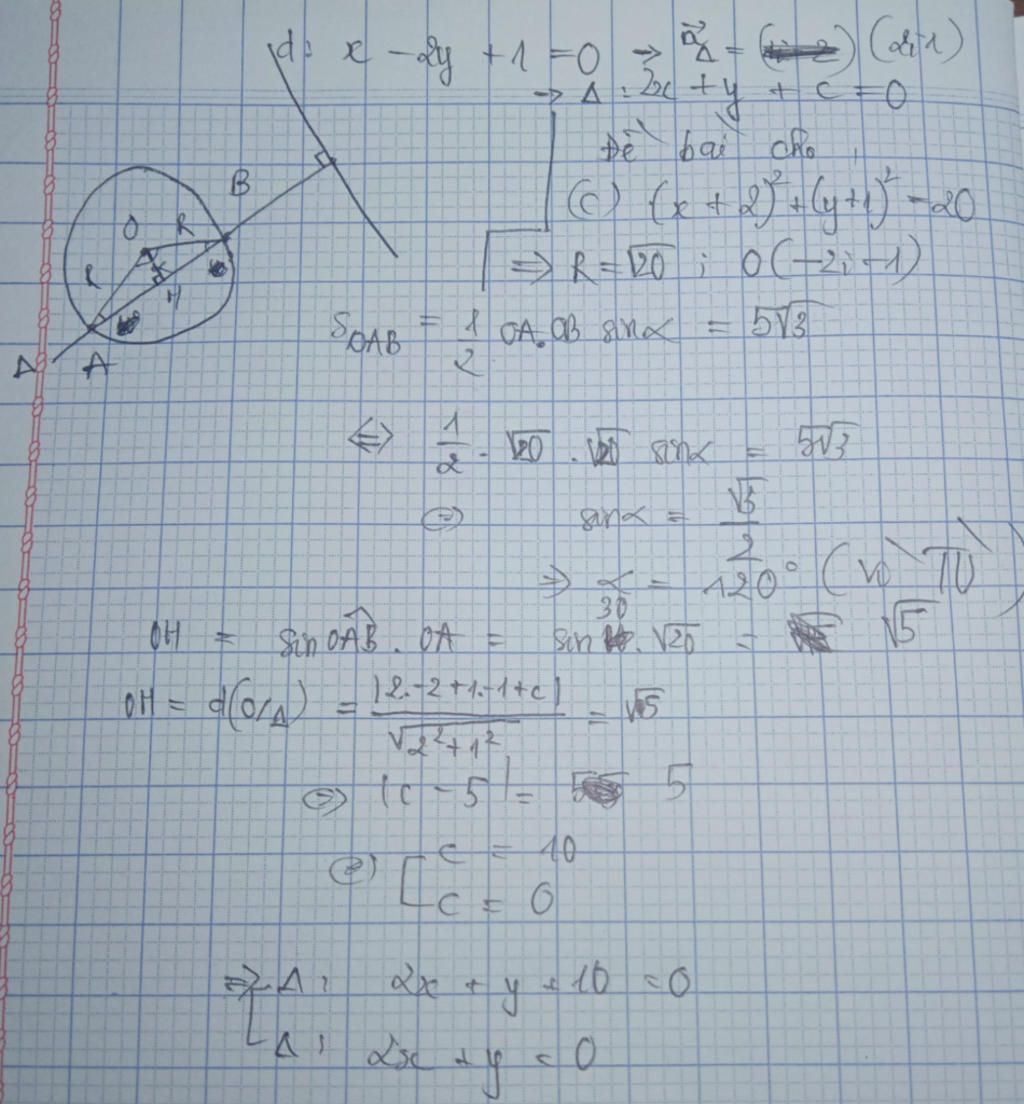 d: x - 2y + 1 = 0 → n⃗Δ = (2; 1)
→ Δ: 2x + y + c = 0
Đề bài cho
(C) (x + 2)² + (y + 1)² = 20
=> R = √20 ; O(-2; -1)
B
O
R
R
H
Δ
A
S OAB = 1/2 OA.OB sinα = 5√3
<=> 1/2 . √20 . √20 sinα = 5√3
<=> sinα = √3/2
=> α = 120° (vì tù)
OH = sin OAB . OA = sin 30 . √20 = √5
OH = d(O/Δ) = |2.-2+1.-1+c| / √2²+1² = √5
<=> |c - 5| = 5
<=> [ c = 10
c = 0
=> Δ: 2x + y + 10 = 0
Δ: 2x + y = 0